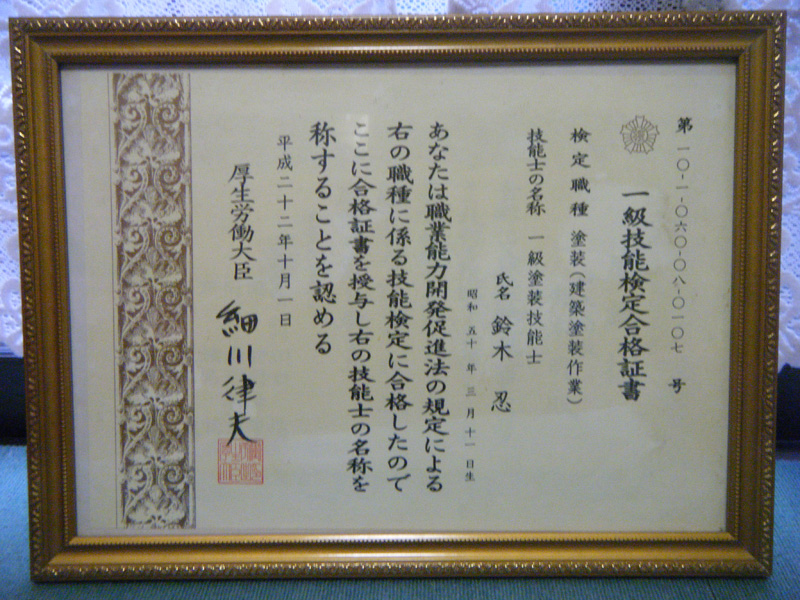 第一〇-一-〇六〇-〇八-〇一〇七号
一級技能検定合格証書
検定職種 塗装(建築塗装作業)
技能士の名称 一級塗装技能士
氏名 鈴木 忍
昭和 五十 年 三 月 十一 日生
あなたは職業能力開発促進法の規定による
右の職種に係る技能検定に合格したので
ここに合格証書を授与し右の技能士の名称を
称することを認める
平成二十二年十月一日
厚生労働大臣 細川律夫